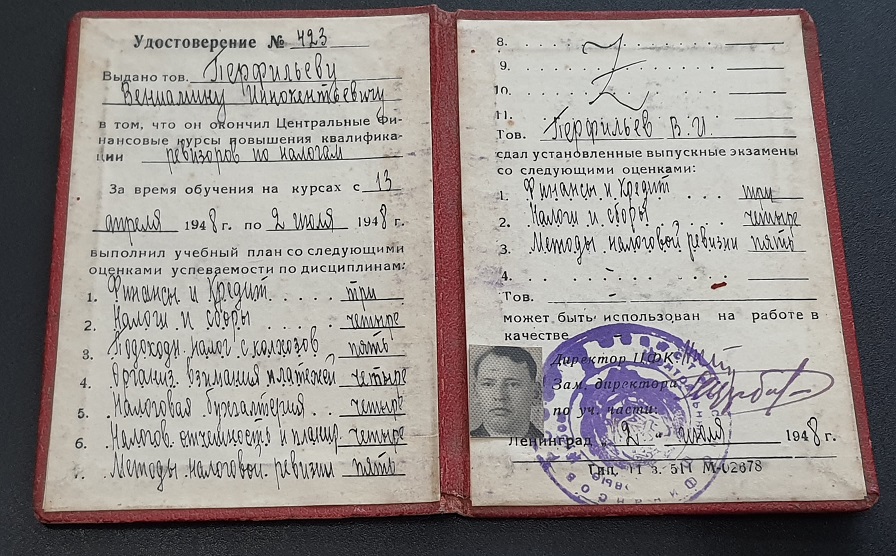 Удостоверение № 423
Выдано тов. Перфильеву
Вениамину Иннокентьевичу
в том, что он окончил Центральные Фи-
нансовые курсы повышения квалифика-
ции ревизоров по налогам
За время обучения на курсах с 13
апреля 1948 г. по 2 июля 1948 г.
выполнил учебный план со следующими
оценками успеваемости по дисциплинам:
1. Финансы и Кредит три
2. Налоги и сборы четыре
3. Подоходн. налог с колхозов пять
4. Организ. взимания платежей четыре
5. Налоговая бухгалтерия четыре
6. Налогов. отчетность и планир. четыре
Методы налоговой ревизии пять
8.
9.
10.
11.
Тов. Перфильев В. И.
сдал установленные выпускные экзамены
со следующими оценками:
1. Финансы и Кредит три
2. Налоги и сборы четыре
3. Методы налоговой ревизии пять
4.
Тов.
может быть использован на работе в
качестве
Директор ЦФК
Зам. директора
по уч. части:
Ленинград „2" июля 1948 г.
Тип. 11 з. 511 М-02678